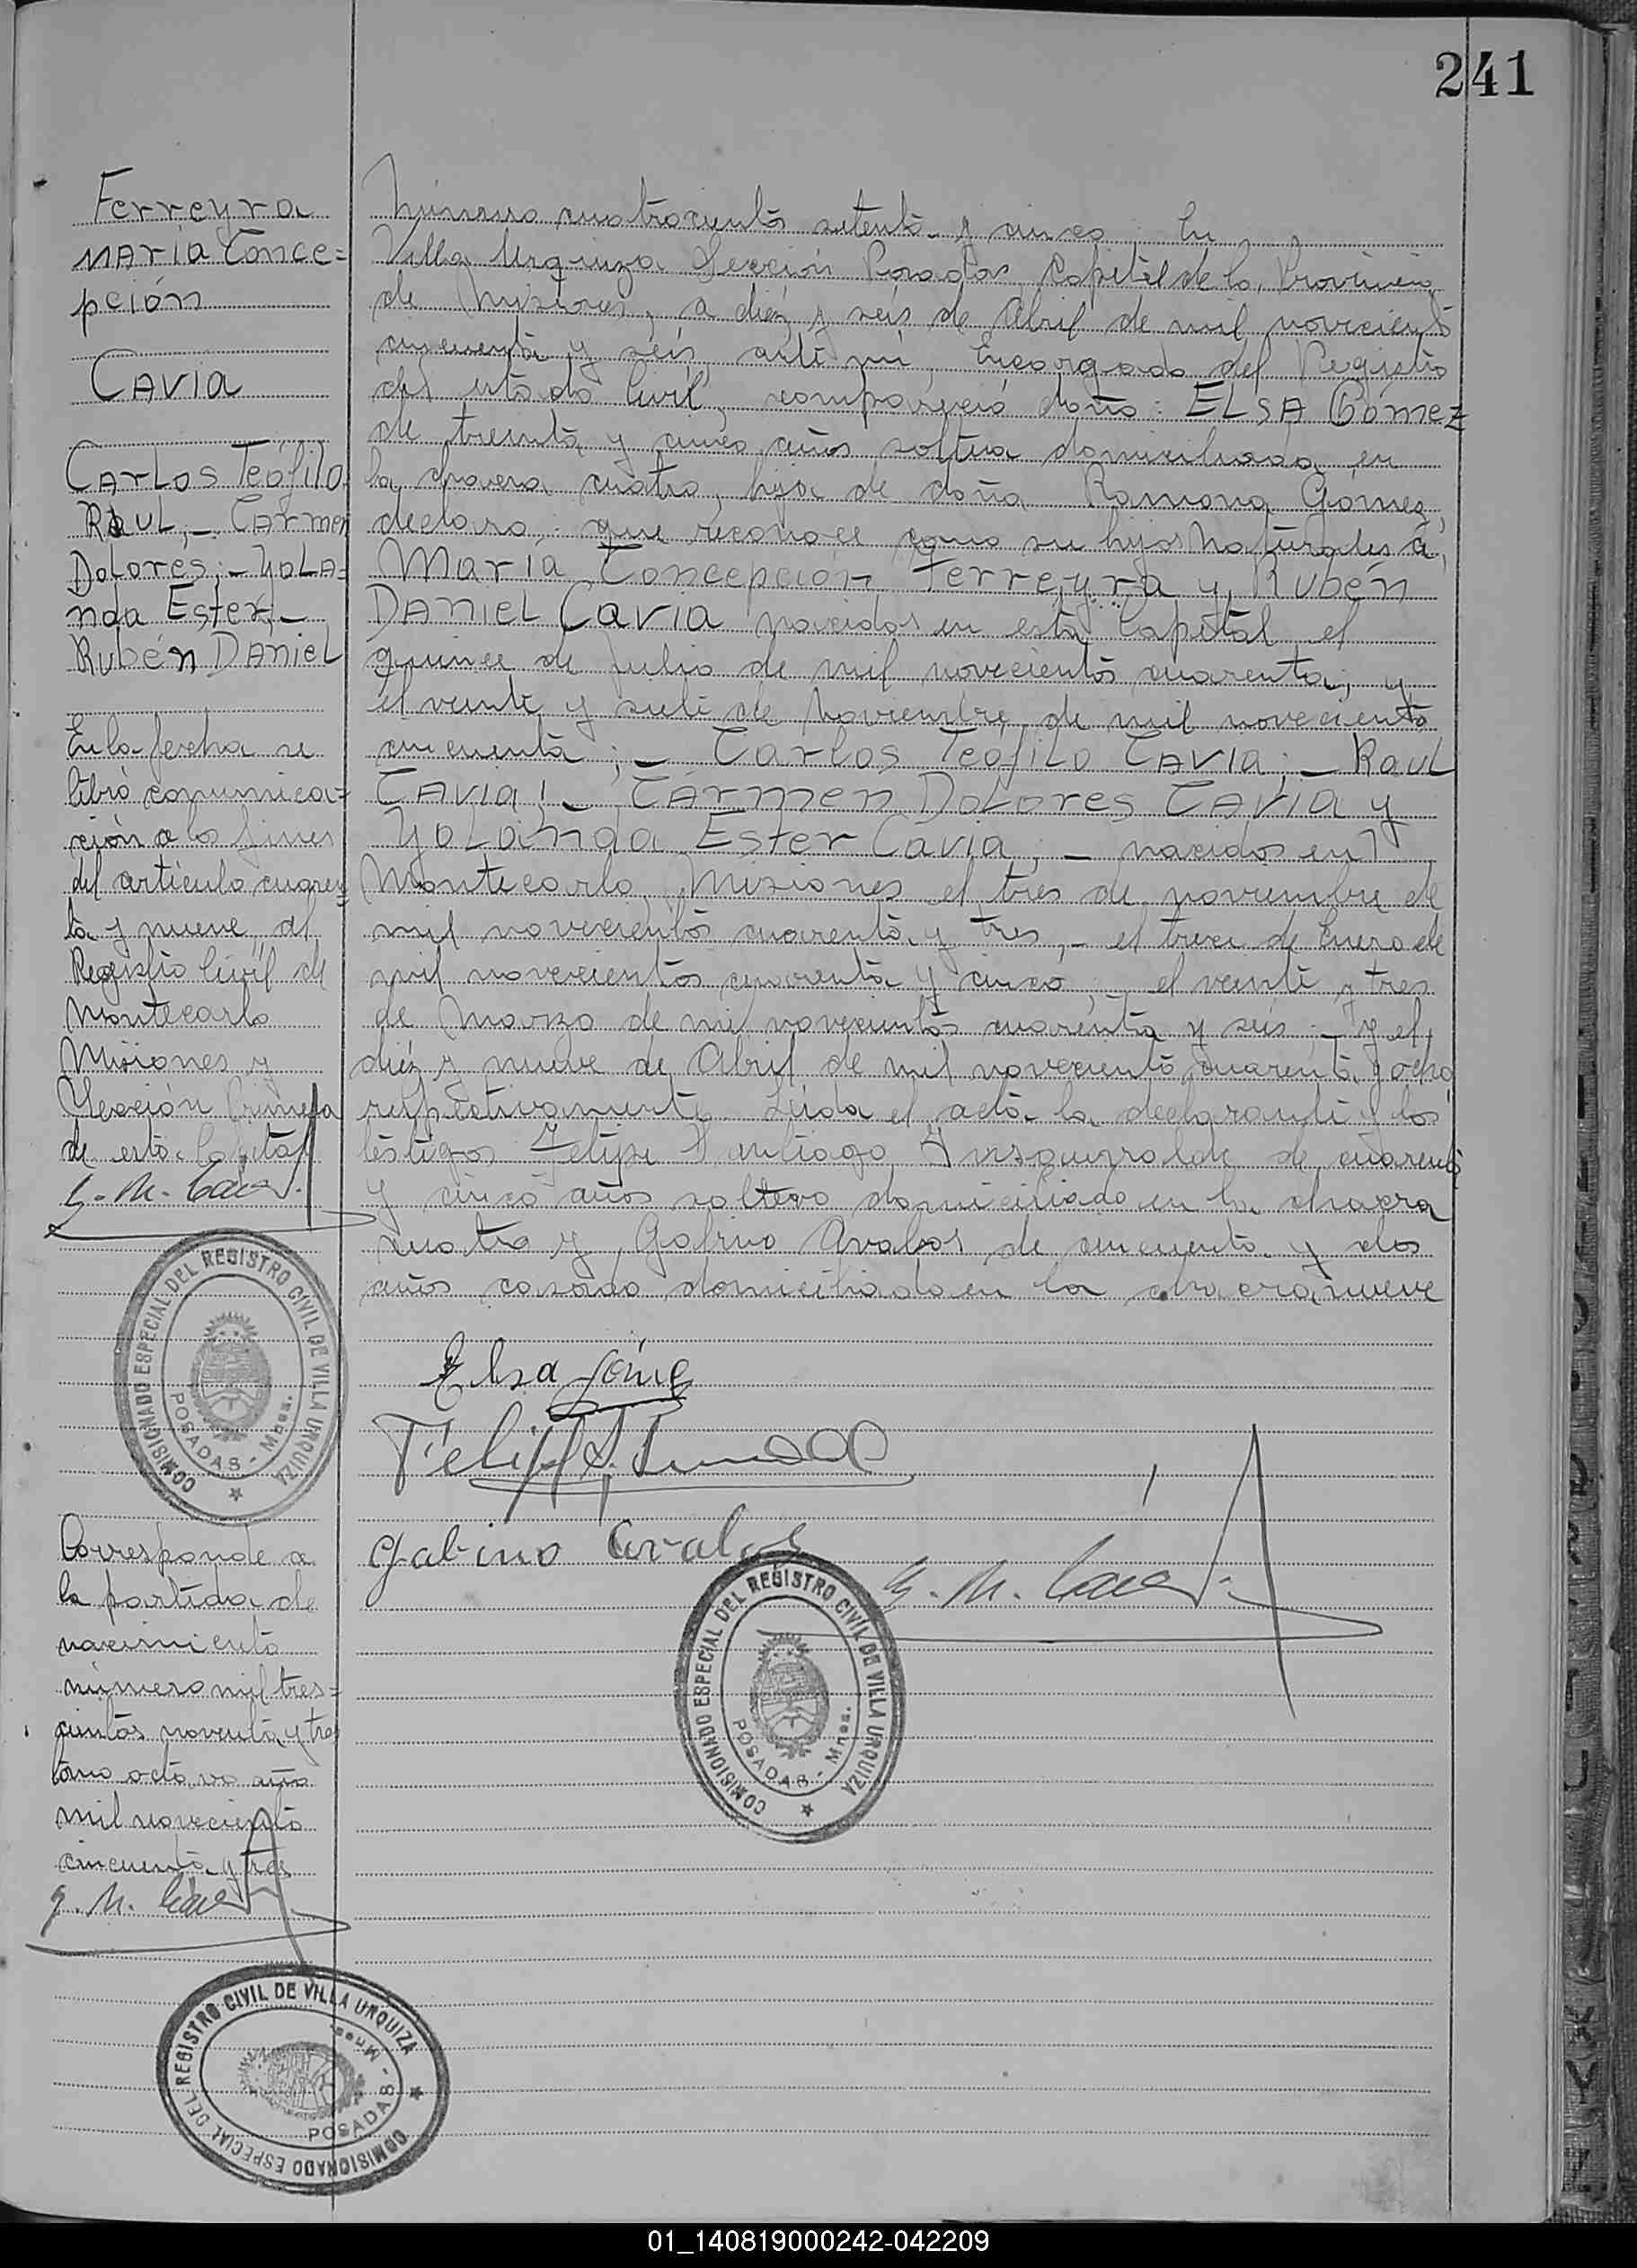 241
Ferreyra
MARÍA Conce=
pción
CAVIA
CARLOS TEófilo
RAUL,- CArmen
DOLORES,- YOLA=
nda Ester,-
Rubén DANIEL
En la fecha se
libró comunica=
ción a los fines
del artículo cuaren
ta y nueve, al
Registro Civil de
Montecarlo
Misiones y
Sección Primera
de esta Capital
COMISIONADO ESPECIAL DEL REGISTRO CIVIL DE VILLA URQUIZA
POSADAS - Mnes.
Corresponde a
la partida de
nacimiento
número mil tres=
cientos noventa y tres
tomo octavo año
mil novecientos
cincuenta y tres
COMISIONADO ESPECIAL DEL REGISTRO CIVIL DE VILLA URQUIZA
POSADAS - Mnes.
Número cuatrocientos setenta y cinco. En
Villa Urquiza Sección Posadas, Capital de la Provincia
de Misiones, a diéz y séis de Abril de mil novecientos
cincuenta y séis, ante mí, Encargado del Registro
del estado Civil, compareció doña: ELSA GómeZ
de treinta y cinco años soltera domiciliada en
la chacra cuatro, hija de doña Ramona Gómez,
declara: que reconoce como su hijos Naturales á,
MAría Concepción Ferreyra y, Rubén
DANIEL CAVIA nacidos en esta Capital el
quince de Julio de mil novecientos cuarenta; y
el veinte y siete de Noviembre de mil novecientos
cincuenta;- CArlos Teófilo CAVIA;- RAUL
CAVIA;- CArmen DOLores CAVIA y
YOLAnda Ester CAVIA;- nacidos en
Montecarlo Misiones el tres de noviembre de
mil novecientos cuarenta y tres,- el trece de Enero de
mil novecientos cuarenta y cinco;- el veinte y tres
de Marzo de mil novecientos cuarenta y seis;- y el
diéz y nueve de Abril de mil novecientos cuarenta y ocho
respectivamente. Leída el acta la declarante y los
testigos Felipe Santiago Insaurralde de cuarenta
y cinco años soltero domiciliado en la chacra
cuatro y, Gabino Avalos de cincuenta y dos
años casado domiciliado en la chacra nueve
Elsa Gómez
Felipe S.
Gabino Avalos
COMISIONADO ESPECIAL DEL REGISTRO CIVIL DE VILLA URQUIZA
POSADAS - Mnes.
01_140819000242-042209